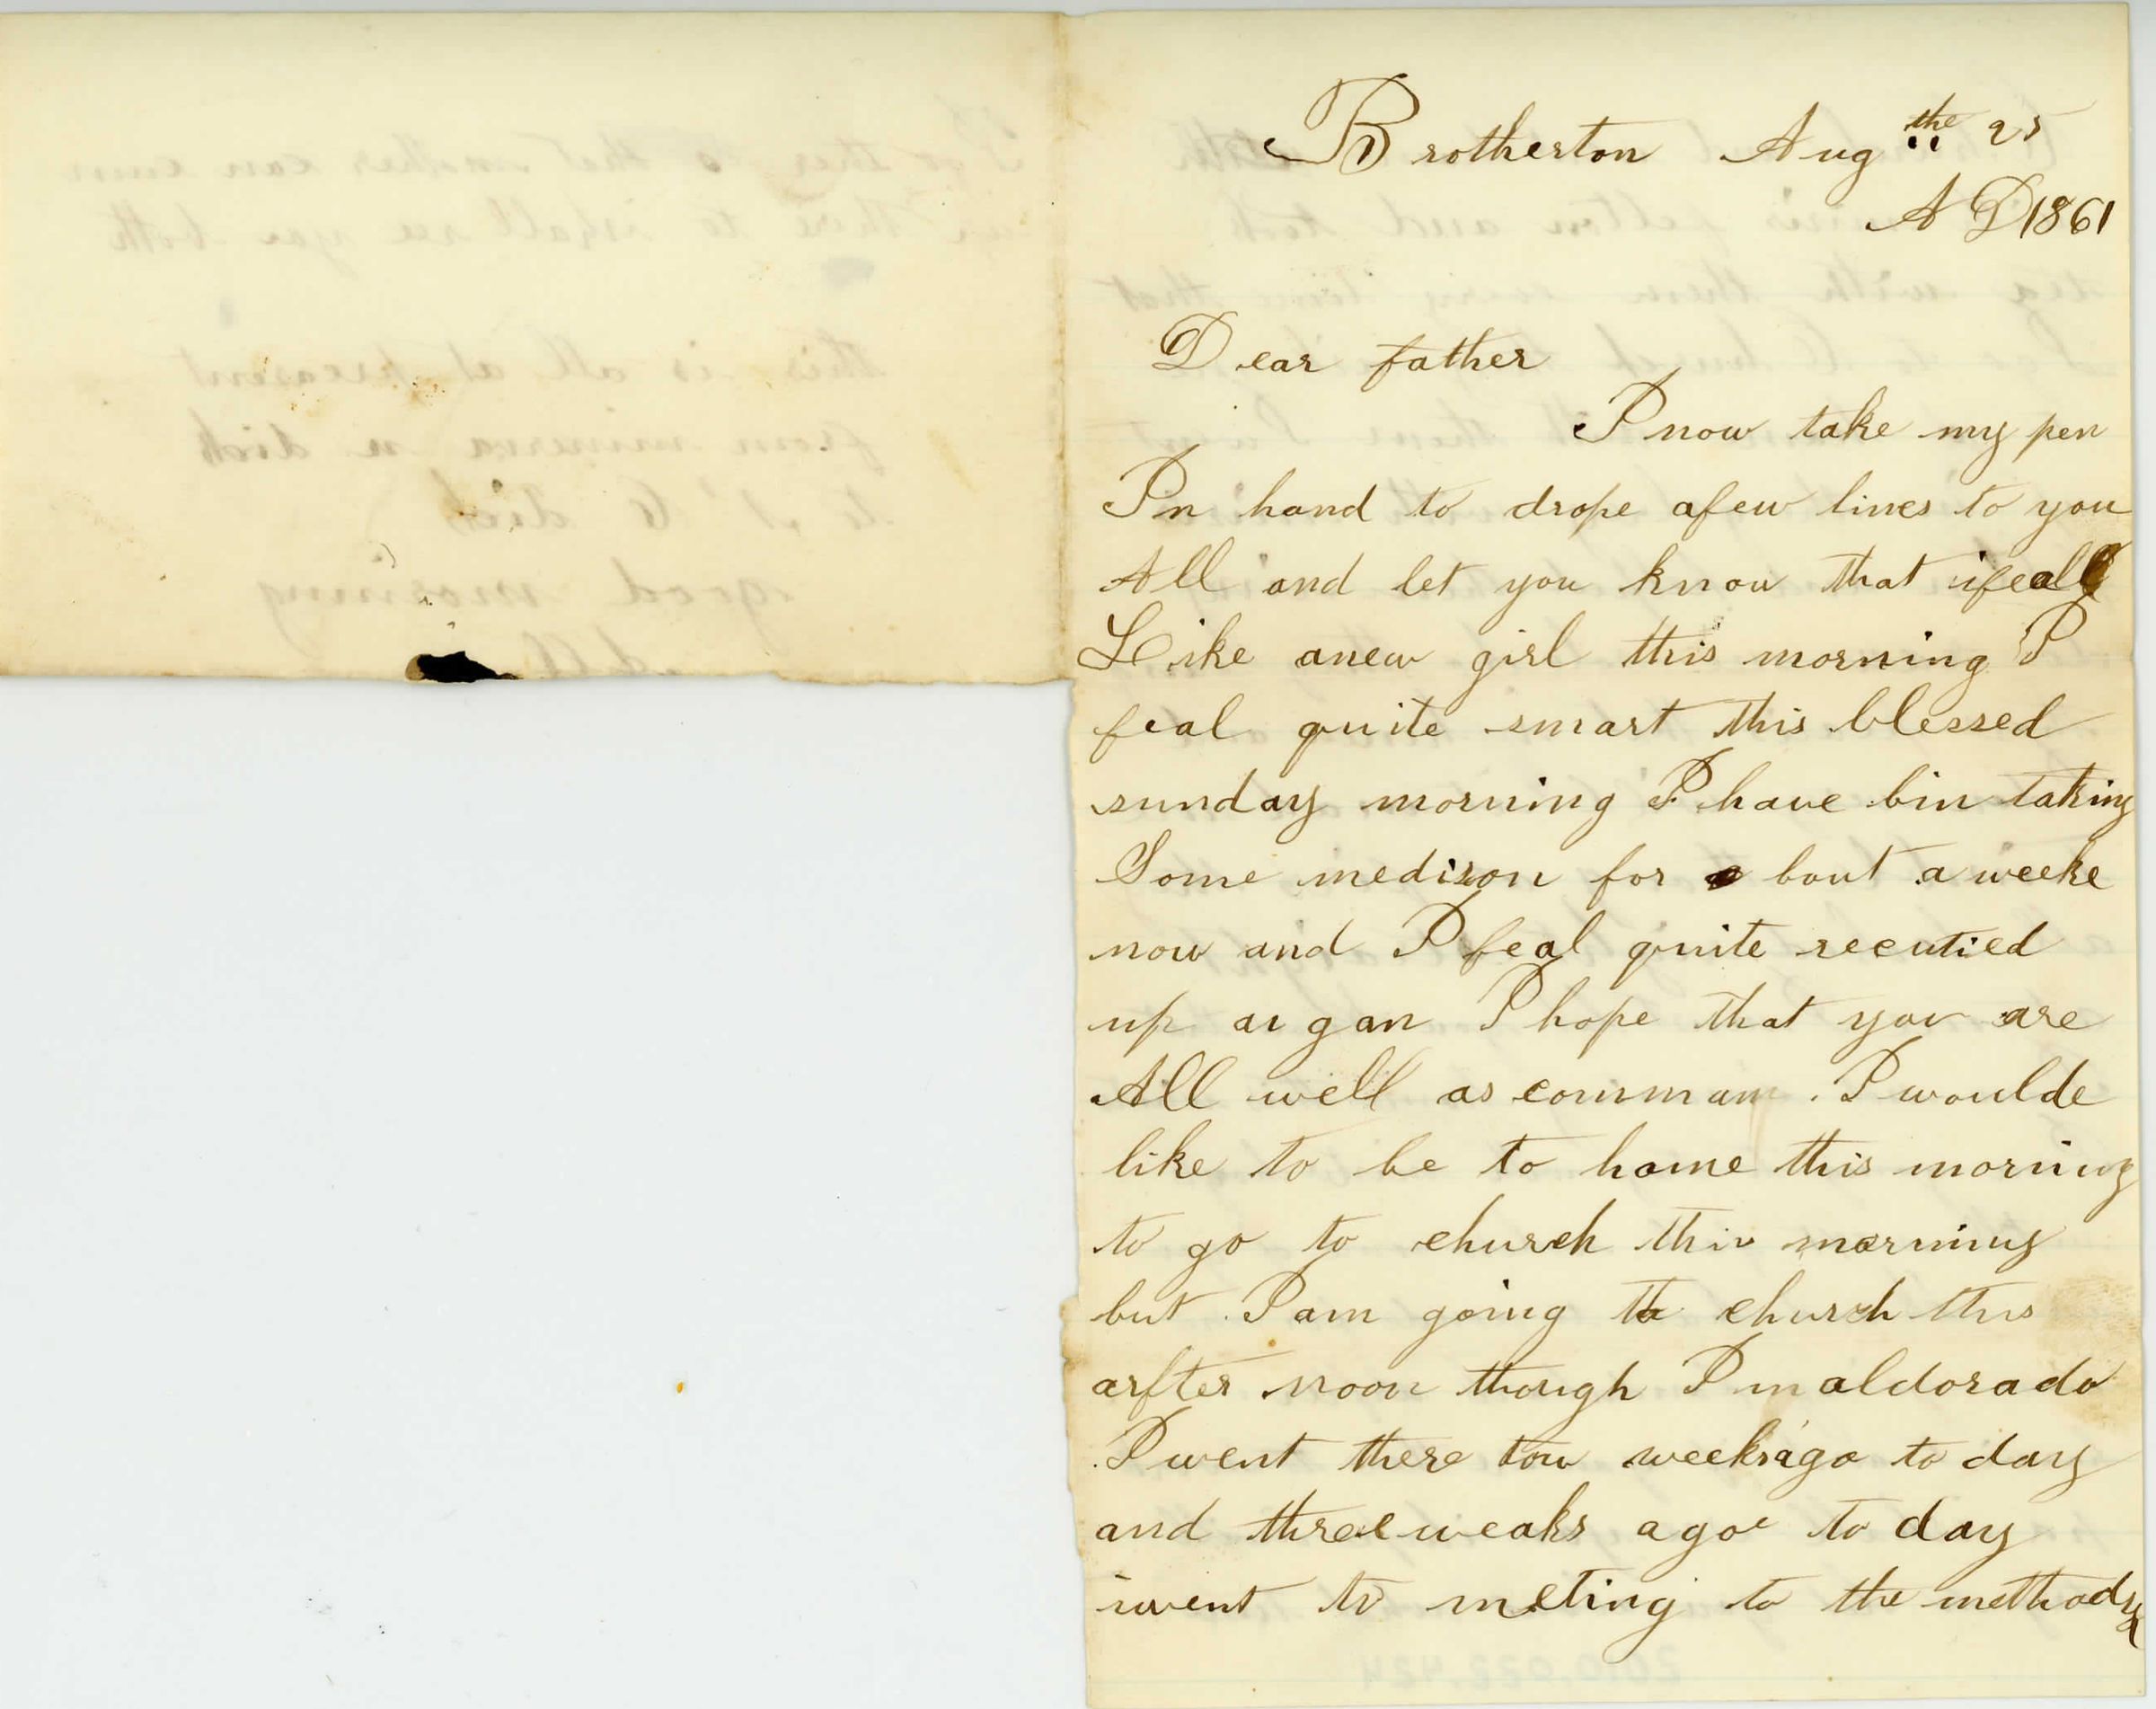 Brotherton Aug the 25
A D 1861
Dear father
I now take my pen
In hand to drope afew lines to you
All and let you know that ifeall
Like anew girl this morning I
feal quite smart this blessed
sunday morning I have bin taking
Some medison for a bout a weeke
now and I feal quite recutied
up aigan I hope that you are
All well as comman. I woulde
like to be to home this morning
to go to church this morning
but I am going to church this
arfter noon though I m aldorado
I went there tow weeks ago to day
and three weaks agoe to day
iwent to meting to the methodist
this is all at preasent
from minerva n dick
to I C dick
good morning
All